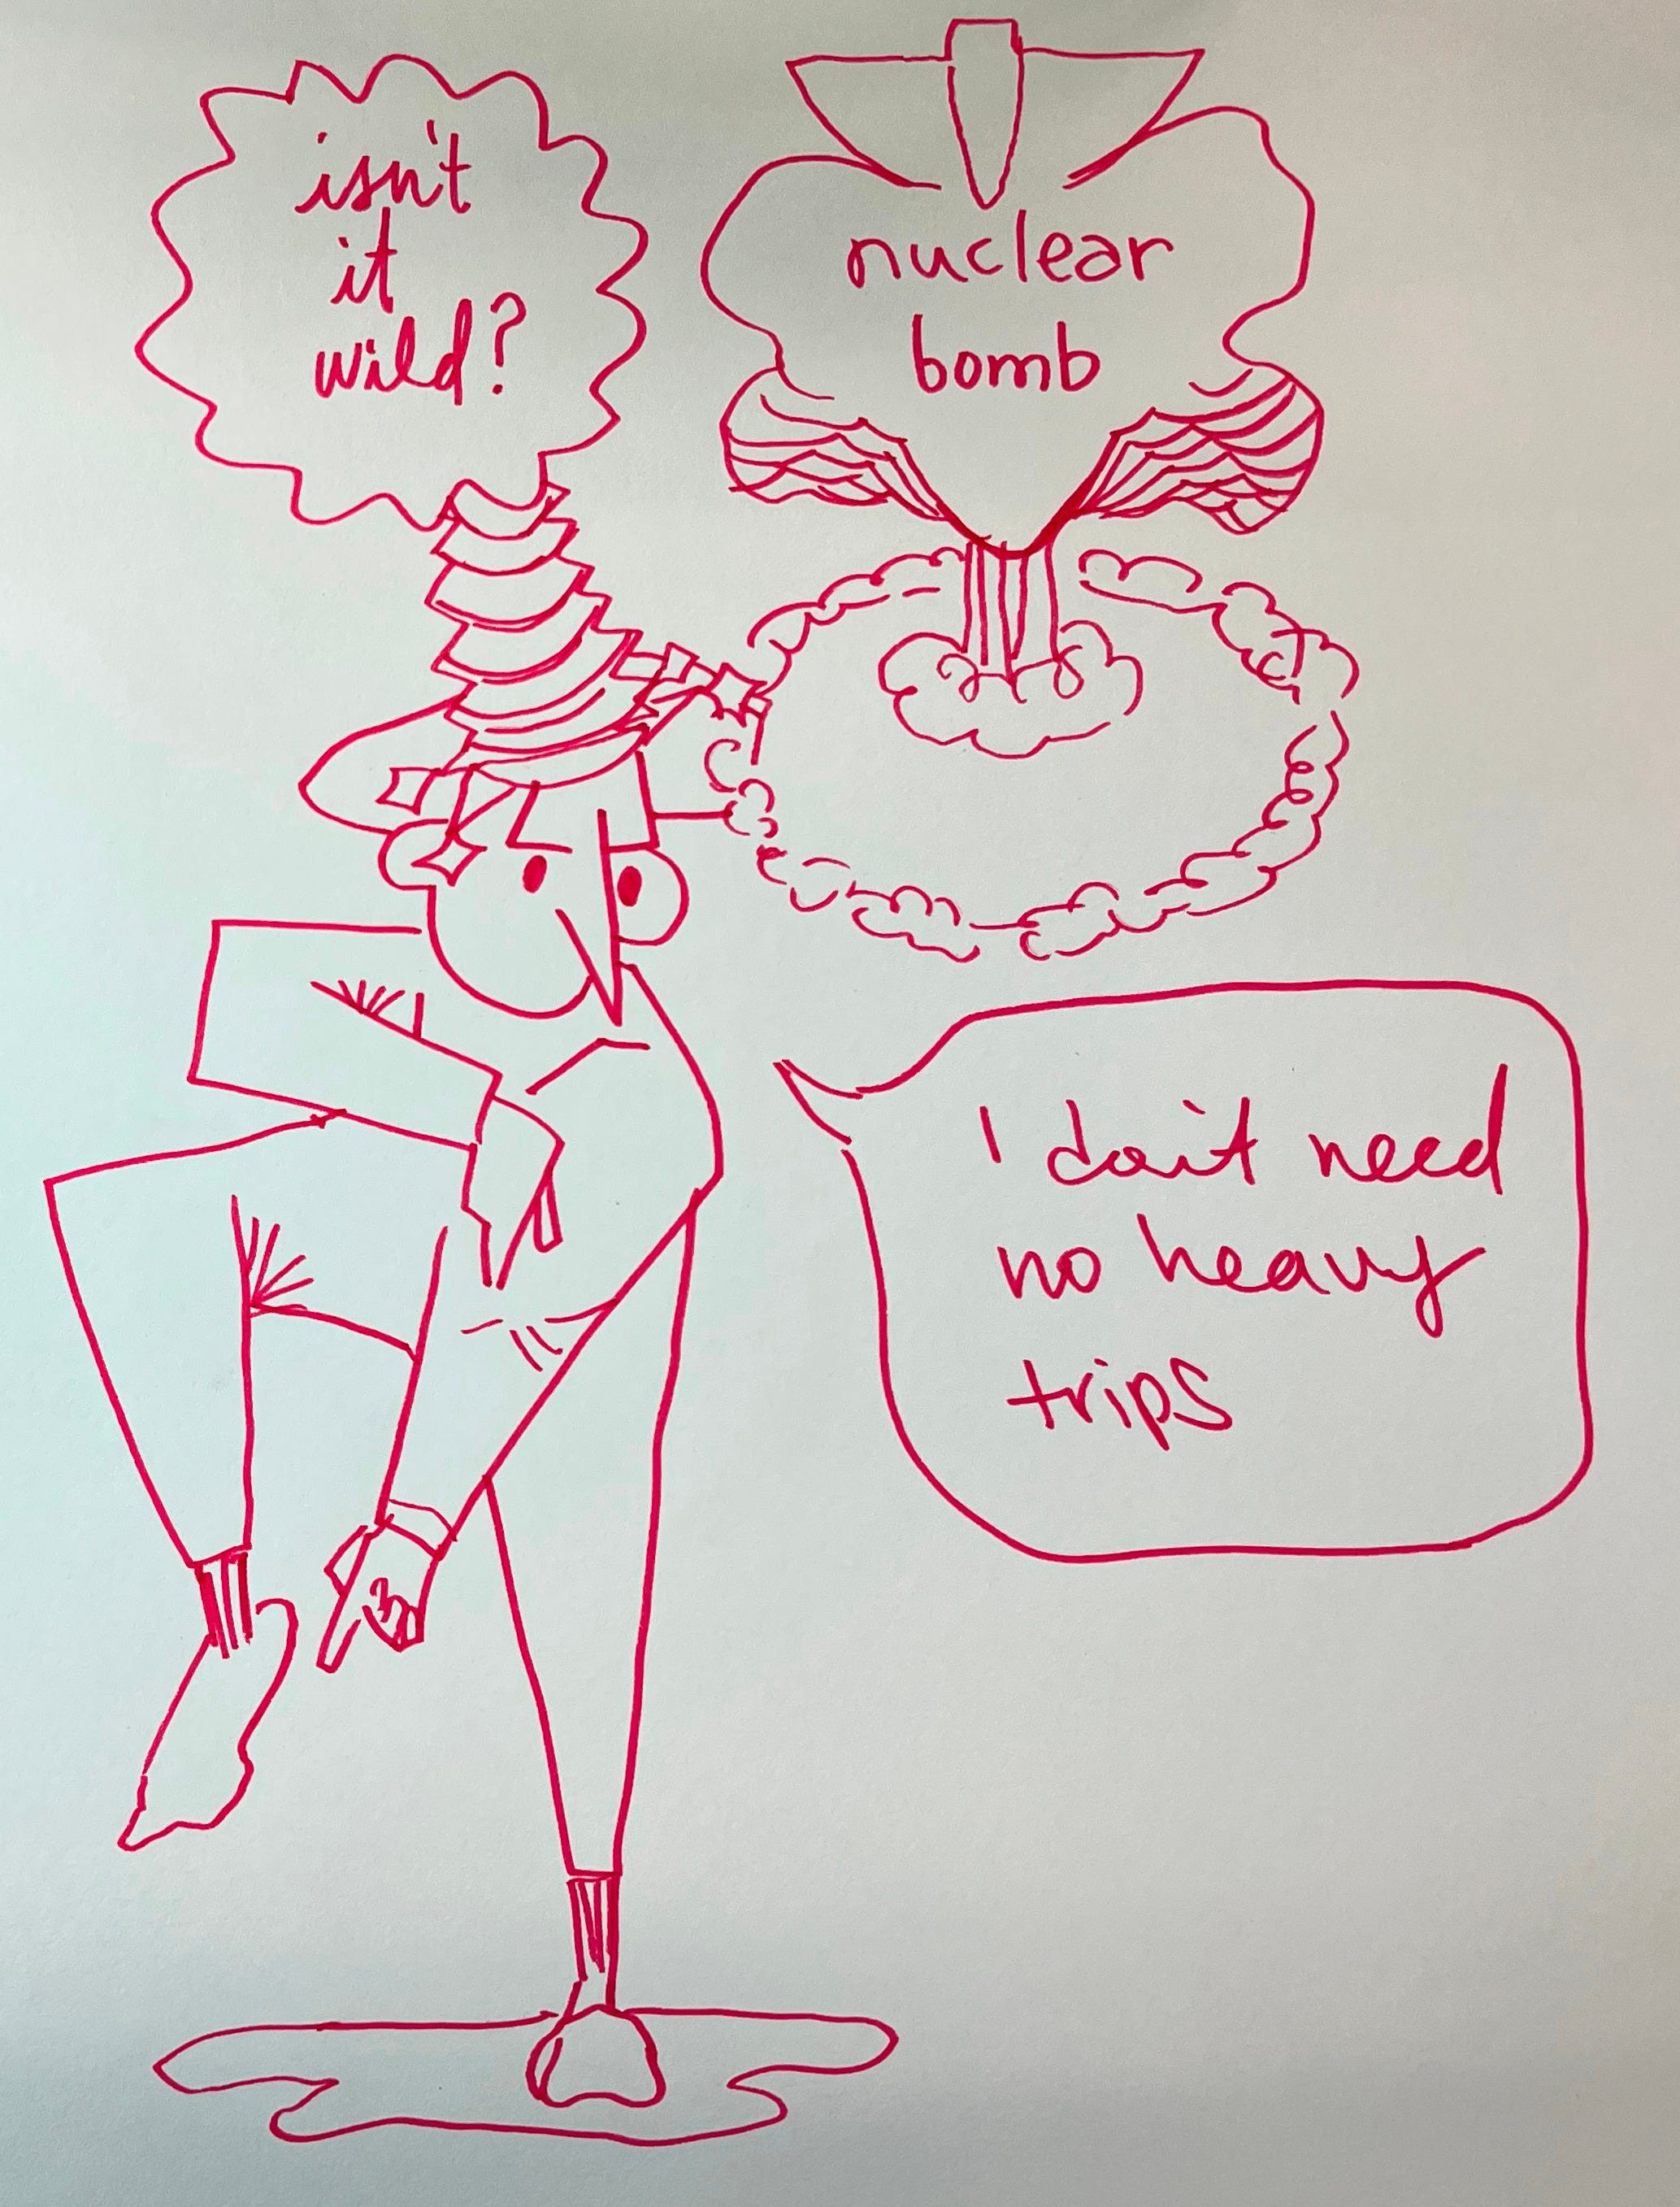 isn't
it
wild?
nuclear
bomb
I don't need
no heavy
trips